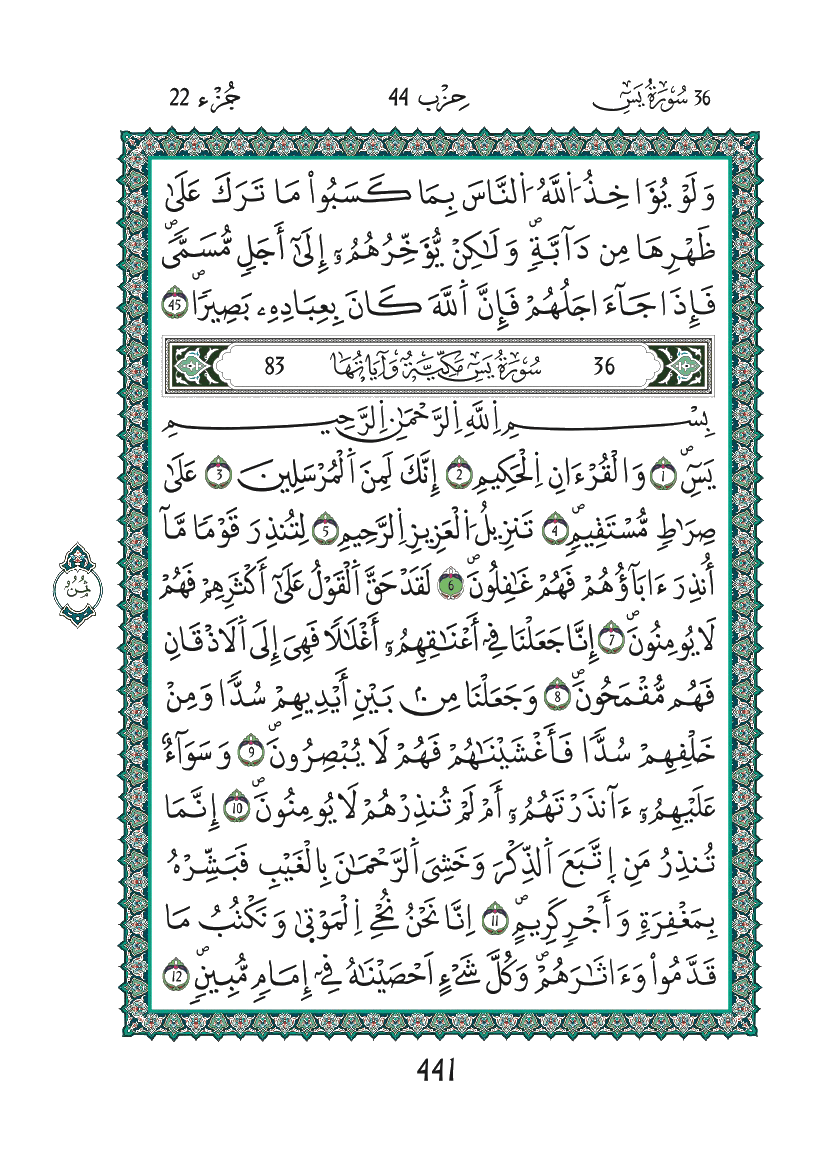 36 سُورَةُ يَسٓ حِزْب 44 جُزْء 22
وَلَوْ يُؤَاخِذُ اُ۬للَّهُ اُ۬لنَّاسَ بِمَا كَسَبُواْ مَا تَرَكَ عَلَىٰ
ظَهْرِهَا مِن دَآبَّةٖۖ وَلَٰكِنْ يُّؤَخِّرُهُمُۥٓ إِلَىٰٓ أَجَلٖ مُّسَمّٗىۖ
فَإِذَا جَآءَ اجَلُهُمْ فَإِنَّ اَ۬للَّهَ كَانَ بِعِبَادِهِۦ بَصِيرٗاۖ 45
36 سُورَةُ يَسٓ مَكِّيَّةٌ وَآيَاتُهَا 83
بِسْمِ اِ۬للَّهِ اِ۬لرَّحْمَٰنِ اِ۬لرَّحِيمِ
يَسٓۖ 1 وَالْقُرْءَانِ اِ۬لْحَكِيمِ 2 إِنَّكَ لَمِنَ اَ۬لْمُرْسَلِينَ 3 عَلَىٰ
صِرَٰطٖ مُّسْتَقِيمٖۖ 4 تَنزِيلُ اُ۬لْعَزِيزِ اِ۬لرَّحِيمِ 5 لِتُنذِرَ قَوْمٗا مَّآ
أُنذِرَ ءَابَآؤُهُمْ فَهُمْ غَٰفِلُونَۖ 6 لَقَدْ حَقَّ اَ۬لْقَوْلُ عَلَىٰٓ أَكْثَرِهِمْ فَهُمْ
لَا يُومِنُونَۖ 7 إِنَّا جَعَلْنَا فِےٓ أَعْنَٰقِهِمُۥٓ أَغْلَٰلاٗ فَهِيَ إِلَى اَ۬لَاذْقَانِ
فَهُم مُّقْمَحُونَۖ 8 وَجَعَلْنَا مِنۢ بَيْنِ أَيْدِيهِمْ سُدّٗا وَمِنْ
خَلْفِهِمْ سُدّٗا فَأَغْشَيْنَٰهُمْ فَهُمْ لَا يُبْصِرُونَۖ 9 وَسَوَآءٌ
عَلَيْهِمُۥٓ ءَآنذَرْتَهُمُۥٓ أَمْ لَمْ تُنذِرْهُمْ لَا يُومِنُونَۖ 10 إِنَّمَا
تُنذِرُ مَنِ اِ۪تَّبَعَ اَ۬لذِّكْرَ وَخَشِيَ اَ۬لرَّحْمَٰنَ بِالْغَيْبِ فَبَشِّرْهُ
بِمَغْفِرَةٖ وَأَجْرٖ كَرِيمٍۖ 11 اِنَّا نَحْنُ نُحْيِ اِ۬لْمَوْتَىٰ وَنَكْتُبُ مَا
قَدَّمُواْ وَءَاثَٰرَهُمْۖ وَكُلَّ شَےْءٍ اَحْصَيْنَٰهُ فِےٓ إِمَامٖ مُّبِينٖۖ 12
ثُمُنُ
441